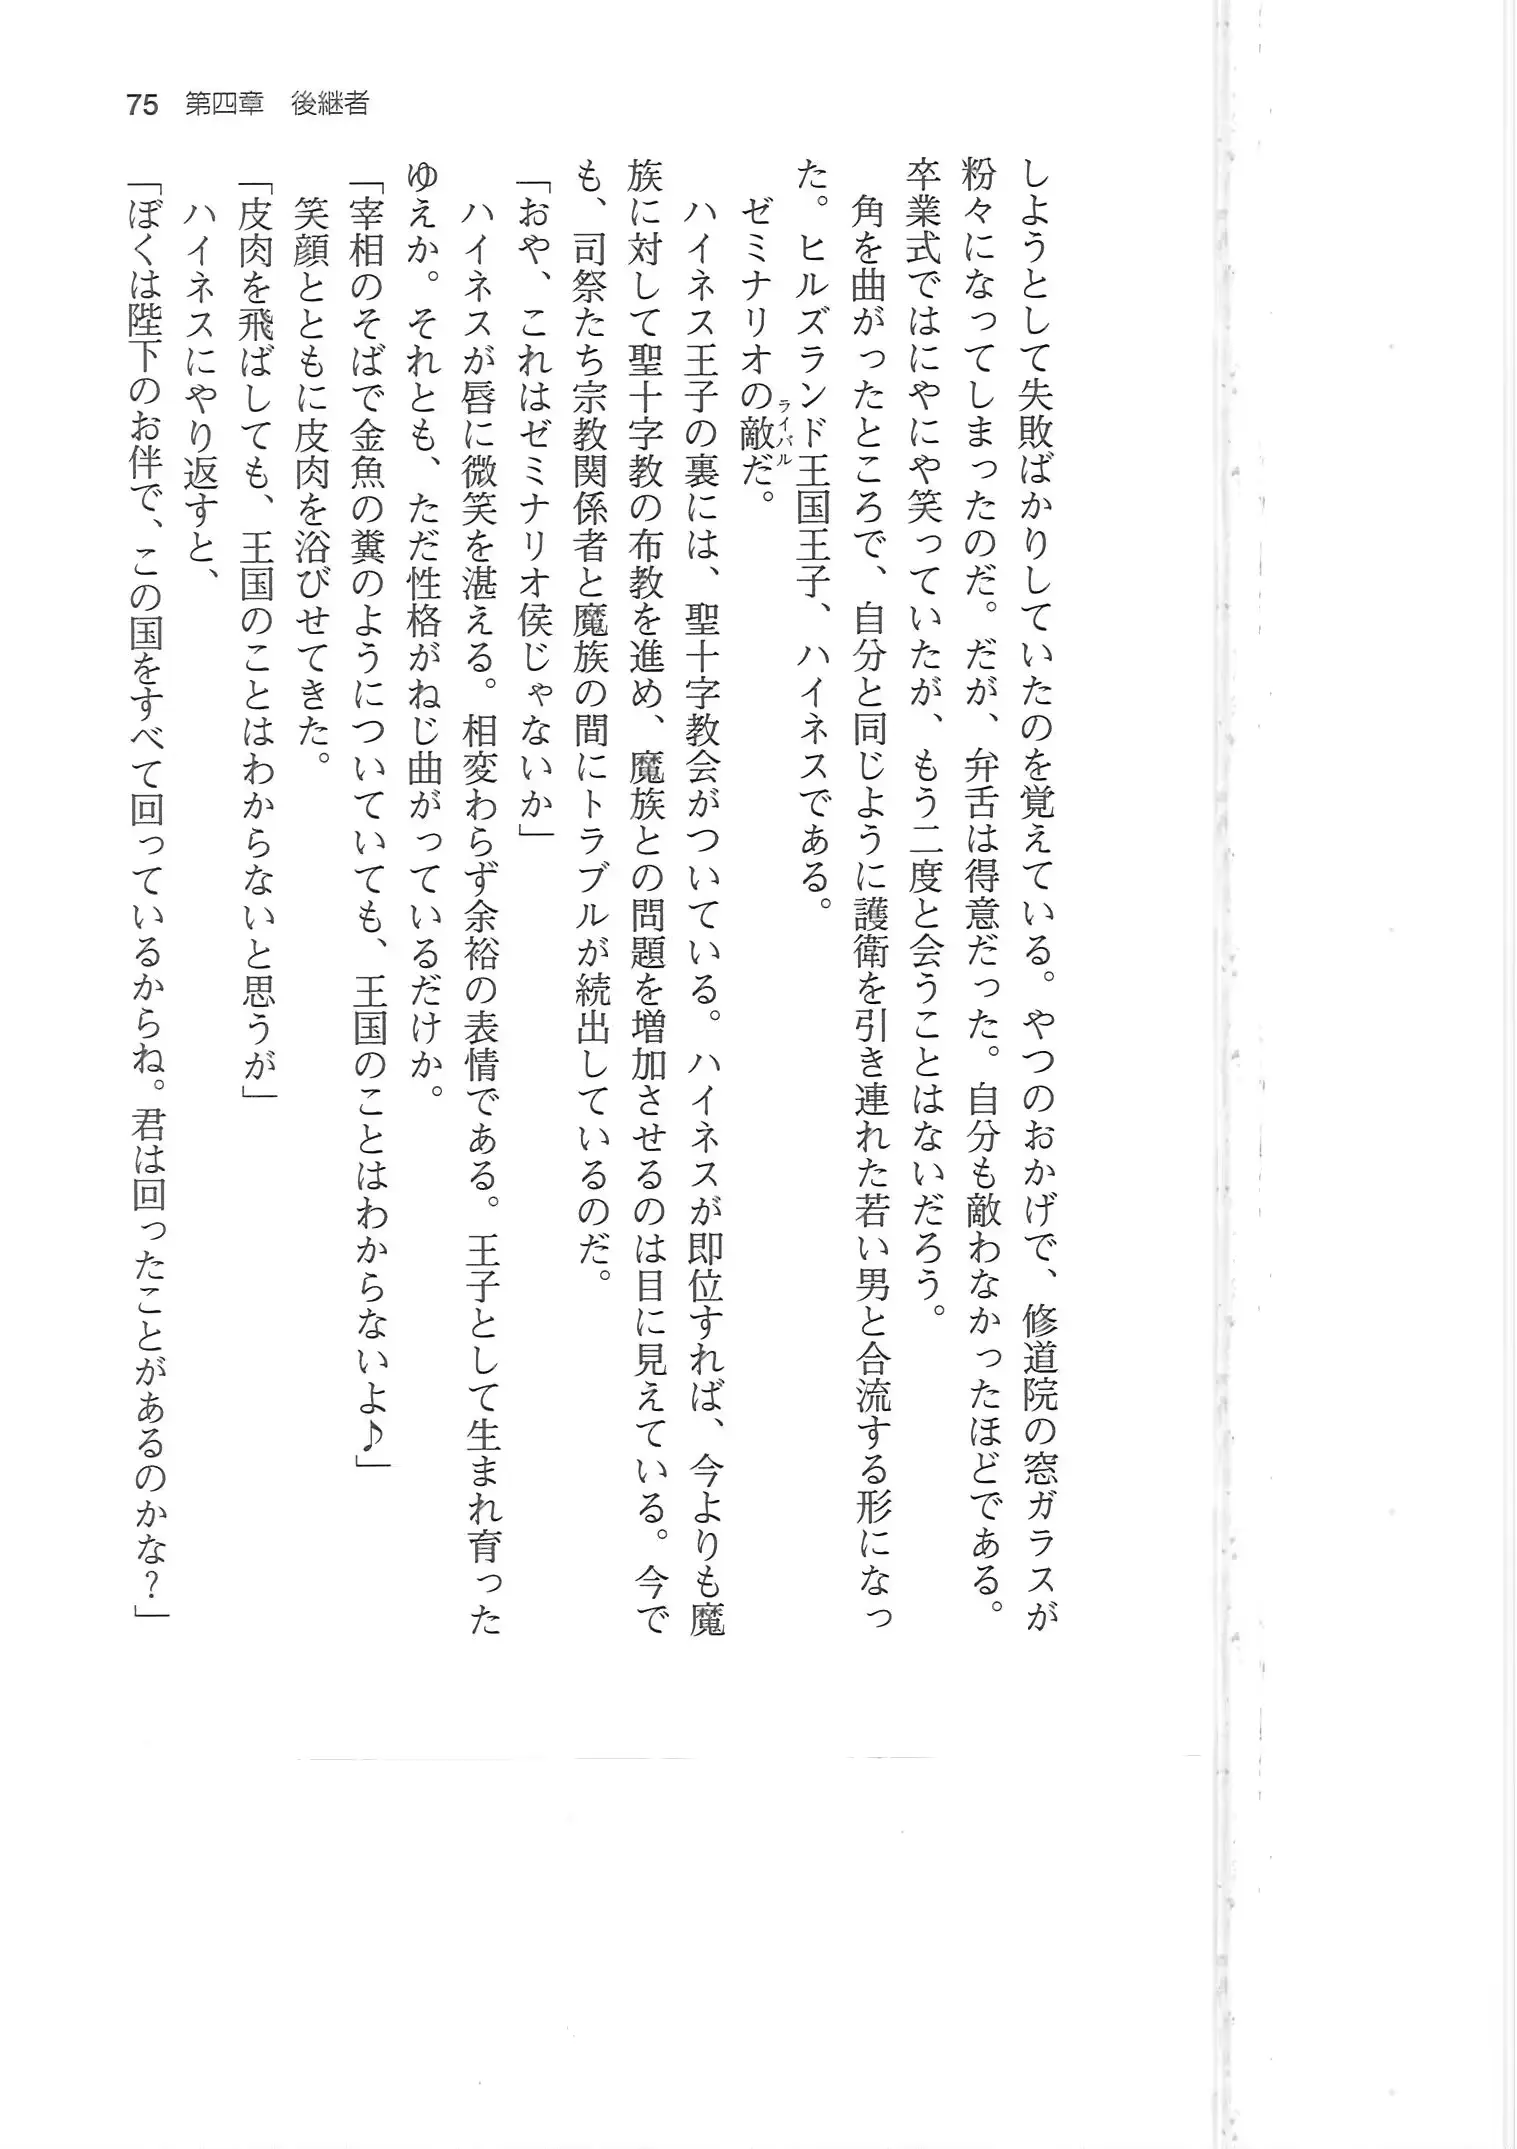 75 第四章 後継者
しようとして失敗ばかりしていたのを覚えている。やつのおかげで、修道院の窓ガラスが
粉々になってしまったのだ。だが、弁舌は得意だった。自分も敵わなかったほどである。
卒業式ではにやにや笑っていたが、もう二度と会うことはないだろう。
角を曲がったところで、自分と同じように護衛を引き連れた若い男と合流する形になっ
た。ヒルズランド王国王子、ハイネスである。
ゼミナリオの敵だ。
ライバル
ハイネス王子の裏には、聖十字教会がついている。ハイネスが即位すれば、今よりも魔
族に対して聖十字教の布教を進め、魔族との問題を増加させるのは目に見えている。今で
も、司祭たち宗教関係者と魔族の間にトラブルが続出しているのだ。
「おや、これはゼミナリオ侯じゃないか」
ハイネスが唇に微笑を湛える。相変わらず余裕の表情である。王子として生まれ育った
ゆえか。それとも、ただ性格がねじ曲がっているだけか。
「宰相のそばで金魚の糞のようについていても、王国のことはわからないよ♪」
笑顔とともに皮肉を浴びせてきた。
「皮肉を飛ばしても、王国のことはわからないと思うが」
ハイネスにやり返すと、
「ぼくは陛下のお伴で、この国をすべて回っているからね。君は回ったことがあるのかな？」